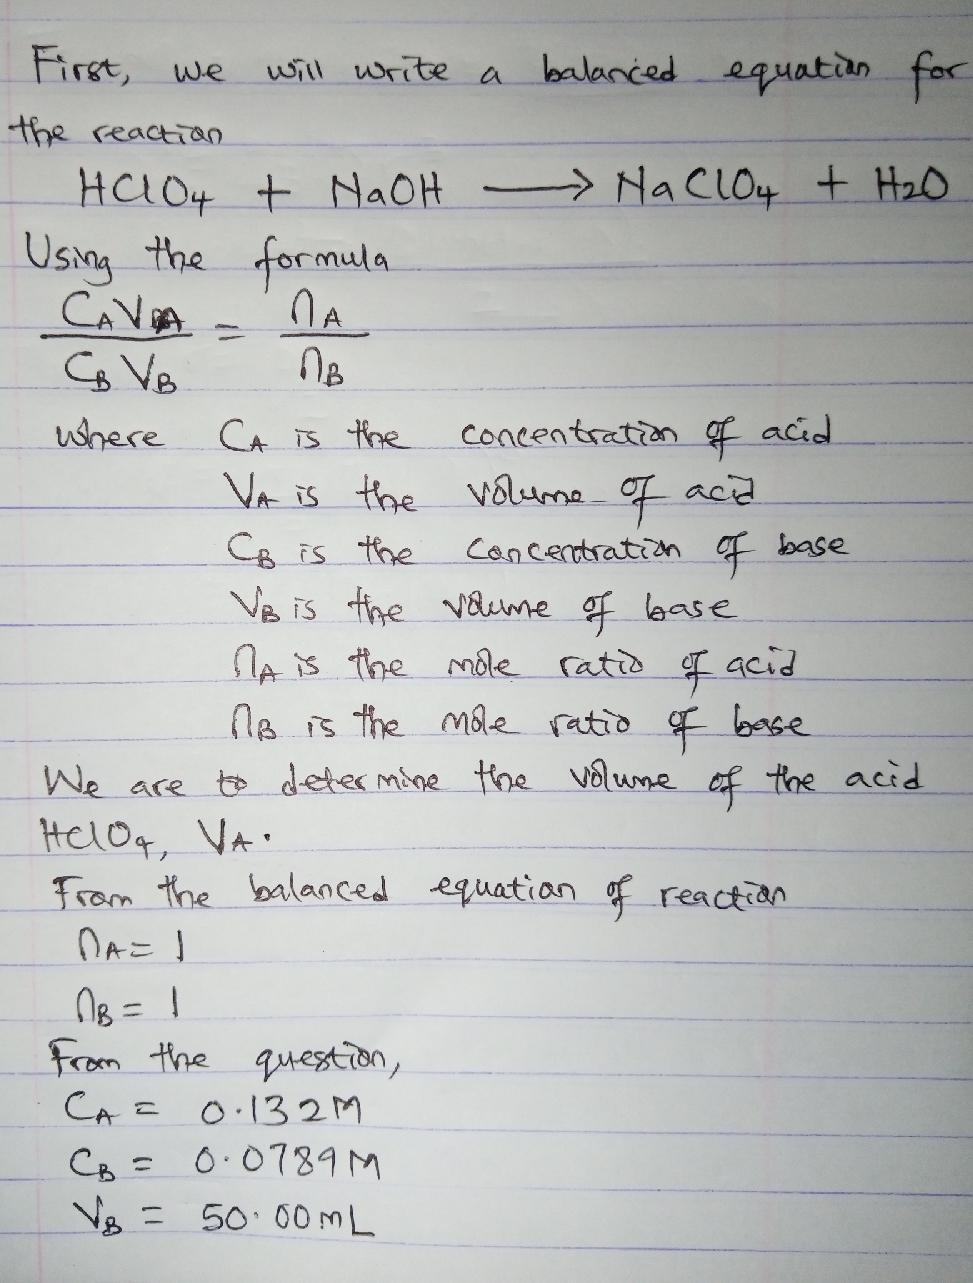 First, we will write a balanced equation for
the reaction
HClO4 + NaOH → NaClO4 + H2O
Using the formula
CAVA = nA
CBVB nB
where CA is the concentration of acid
VA is the volume of acid
CB is the concentration of base
VB is the volume of base
nA is the mole ratio of acid
nB is the mole ratio of base
We are to determine the volume of the acid
HClO4, VA.
From the balanced equation of reaction
nA = 1
nB = 1
From the question,
CA = 0.132M
CB = 0.0789M
VB = 50.00mL